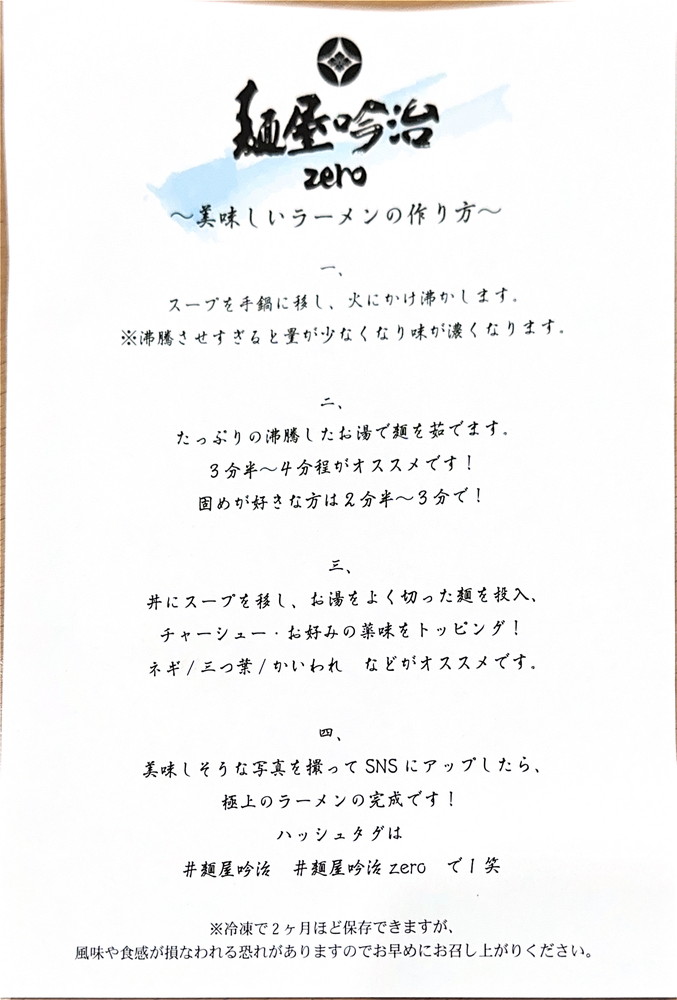 麺屋吟治
zero
～美味しいラーメンの作り方～
一、
スープを手鍋に移し、火にかけ沸かします。
※沸騰させすぎると量が少なくなり味が濃くなります。
二、
たっぷりの沸騰したお湯で麺を茹でます。
3分半～4分程がオススメです！
固めが好きな方は2分半～3分で！
三、
丼にスープを移し、お湯をよく切った麺を投入、
チャーシュー・お好みの薬味をトッピング！
ネギ/三つ葉/かいわれ　などがオススメです。
四、
美味しそうな写真を撮ってSNSにアップしたら、
極上のラーメンの完成です！
ハッシュタグは
#麺屋吟治　#麺屋吟治zero　で！笑
※冷凍で2ヶ月ほど保存できますが、
風味や食感が損なわれる恐れがありますのでお早めにお召し上がりください。